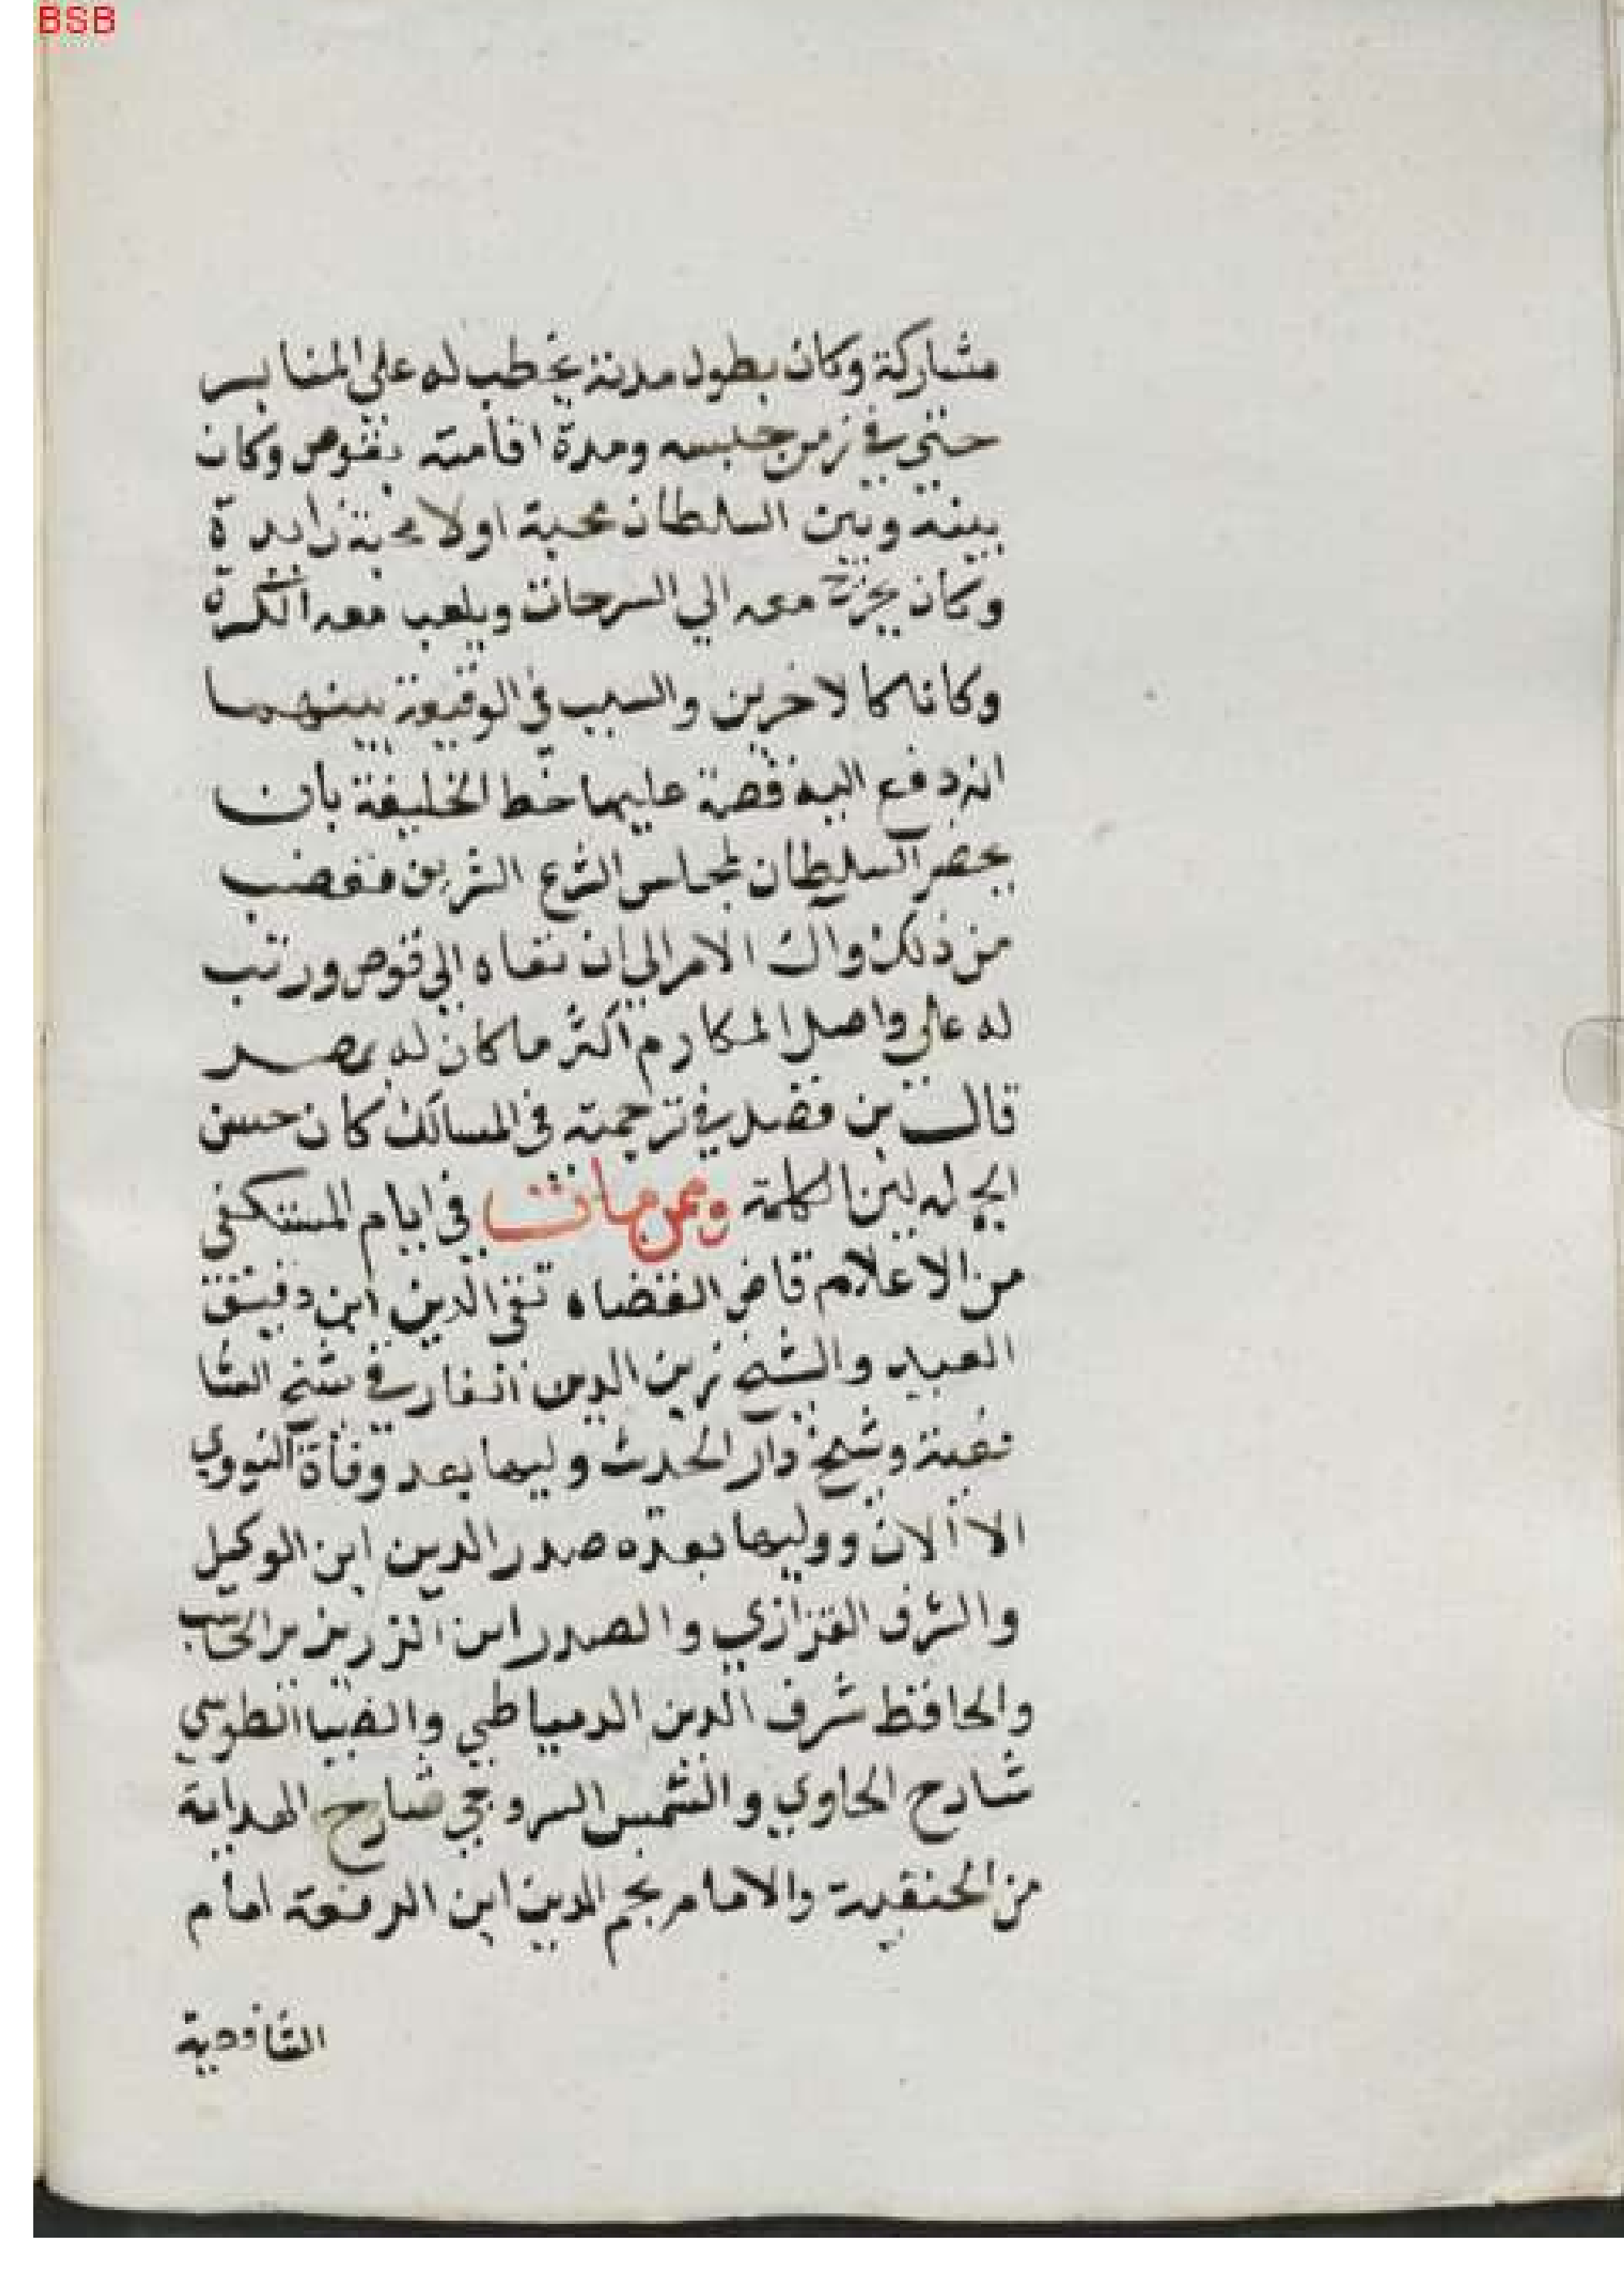 BSB
مشاركة وكان بطول مدته يخطب له على المنابر
حتي في زمن حبسه ومدة اقامته بقوص وكان
بينه وبين السلطان محبة اولا محبة زايدة
وكان يخرج معه الي السرحات ويلعب معه الكرة
وكانا كالاخرين والسبب في الوقيعة بينهما
انه دفع اليه قصة عليها خط الخليفة بان
يحضر السلطان لمجلس الشرع الشريف فغضب
من ذلك وآل الامر الى ان نفاه الى قوص ورتب
له على واصل المكارم اكثر ما كان له بمصر
قال بن فضل في ترجمته في المسالك كان حسن
الجمله لين الكلمة وممن مات في ايام المستكفي
من الاعلام قاض القضاه تقي الدين ابن دقيق
العيد والشيخ زين الدين الفارقي شيخ الشا
فعية وشيخ دار الحديث وليها بعد وفاة النووي
الا الان ووليها بعده صدر الدين ابن الوكيل
والشرف الفزازي والصدر ابن الزرير بن الحاسب
والحافظ شرف الدين الدمياطي والضيا الطوسي
شارح الحاوي والشمس السروجي شارح الهداية
من الحنفية والامام نجم الدين ابن الرفعة امام